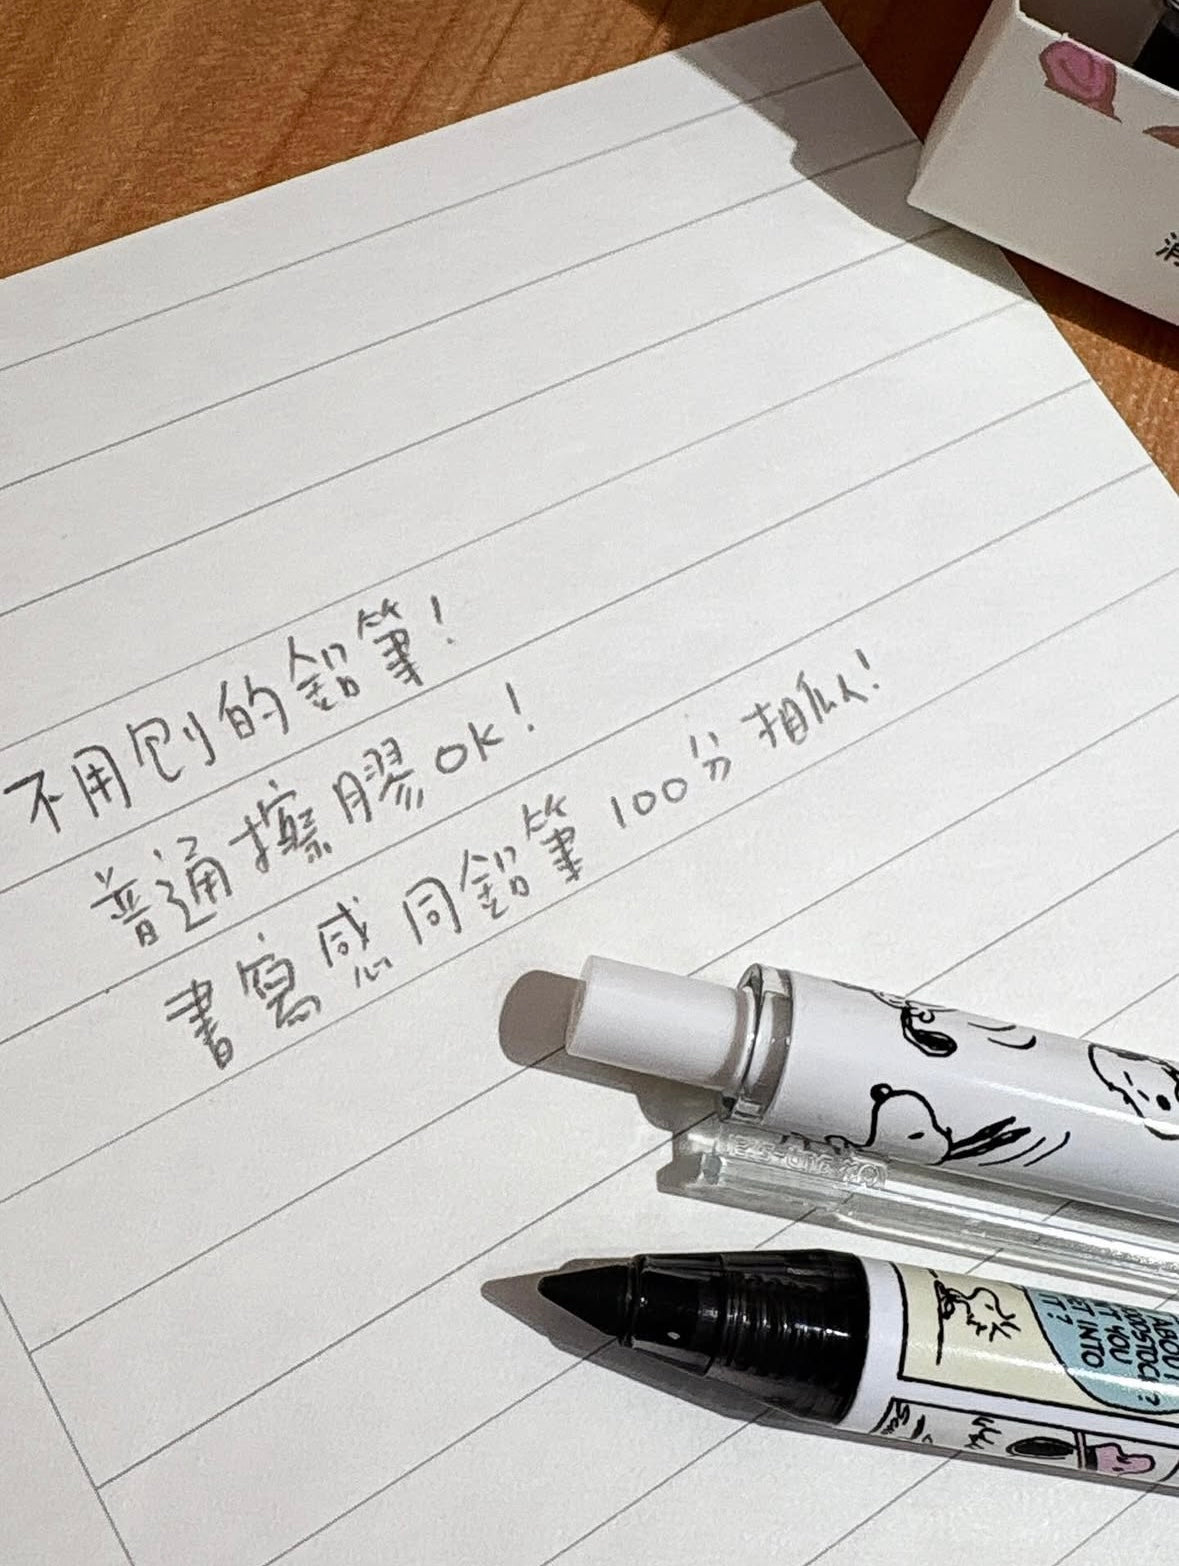 不用刨的鉛筆!
普通擦膠OK!
書寫感同鉛筆100分相似!
消
ABOUT
WOODSTOCK?
IT YOU
INTO
IT?